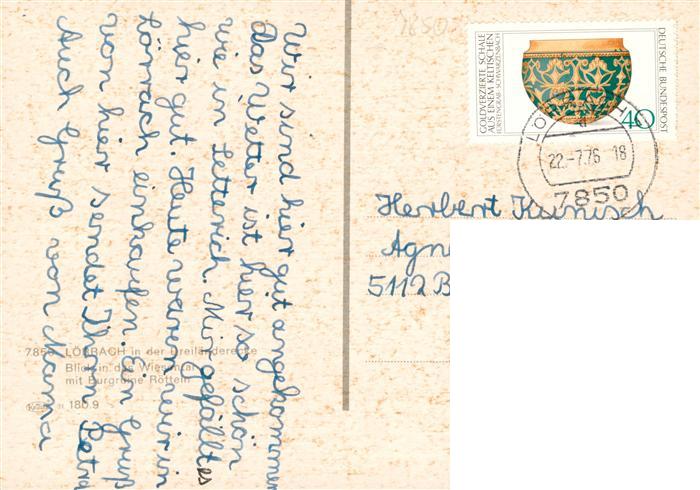 Wir sind hier gut angekommen
das Wetter ist hier so schön
wie in Setterich. Mir gefällt es
hier gut. Heute waren wir in
Lörrach einkaufen. Ein Gruß
von hier sendet Ihnen Petra
Auch Gruß von Mama
7850 LÖRRACH in der Dreiländerecke
Blick in das Wiesental
mit Burgruine Rötteln
180.9
7850
GOLDVERZIERTE SCHALE
AUS EINEM KELTISCHEN
FÜRSTENGRAB · SCHWARZENBACH
DEUTSCHE BUNDESPOST
40
22.-7.76 18
7850
Herbert Kunisch
Agn
5112 B